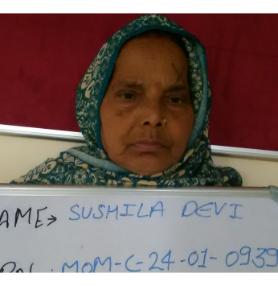 AME→ SUSHILA DEVI
MOM-C-24-01-0939